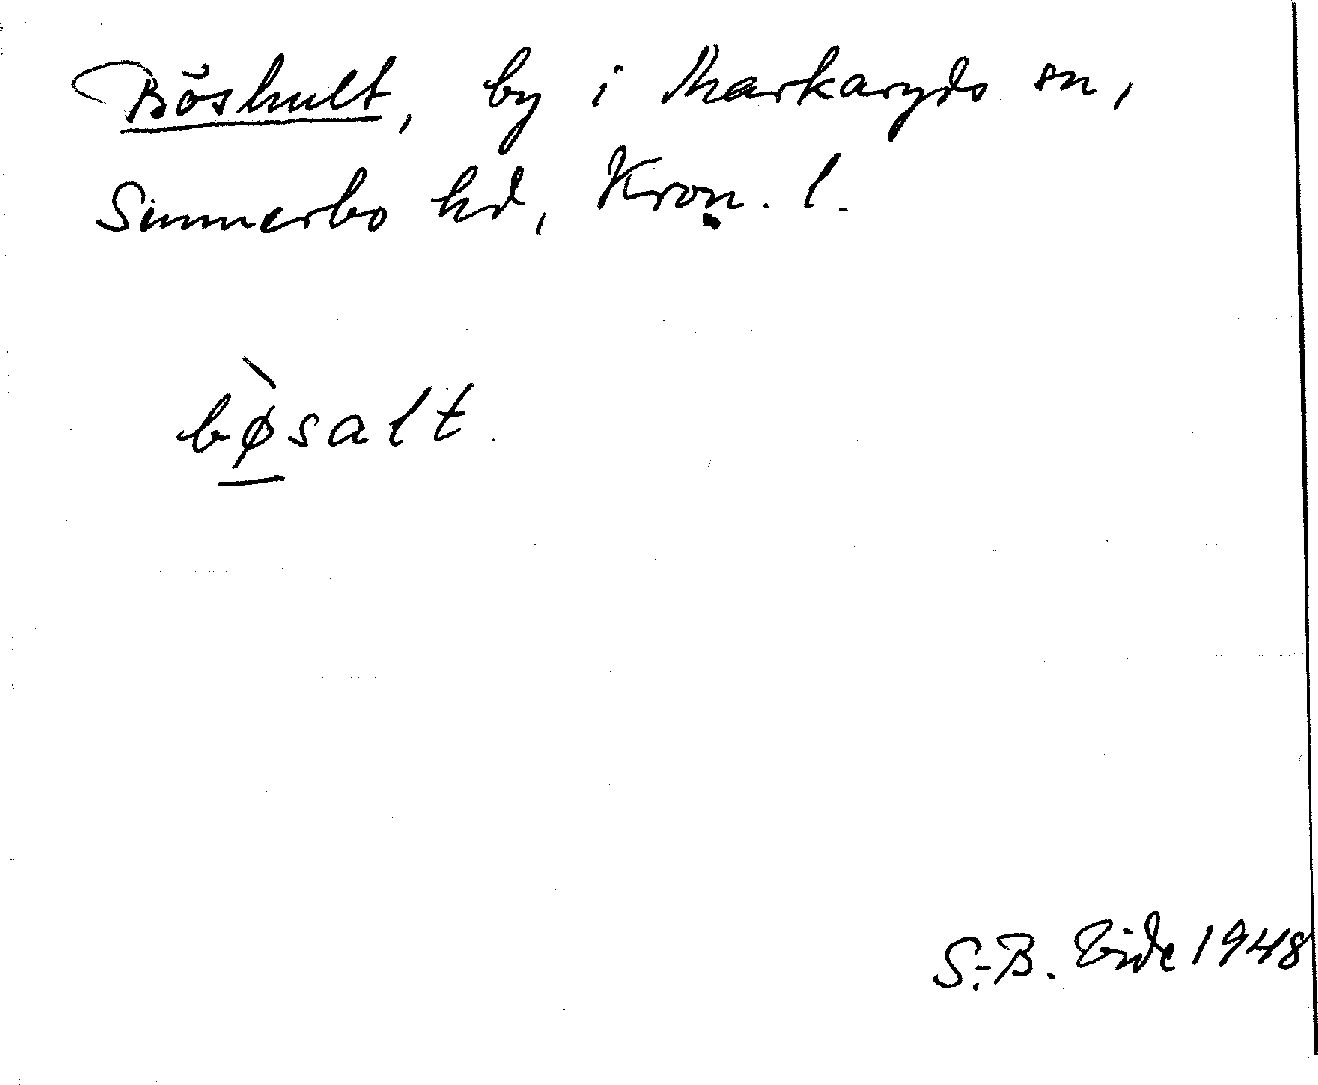 Böshult, by i Markaryds sn,
Sunnerbo hd, Kron. l.
bø̀salt.
S.-B. Vide 1948